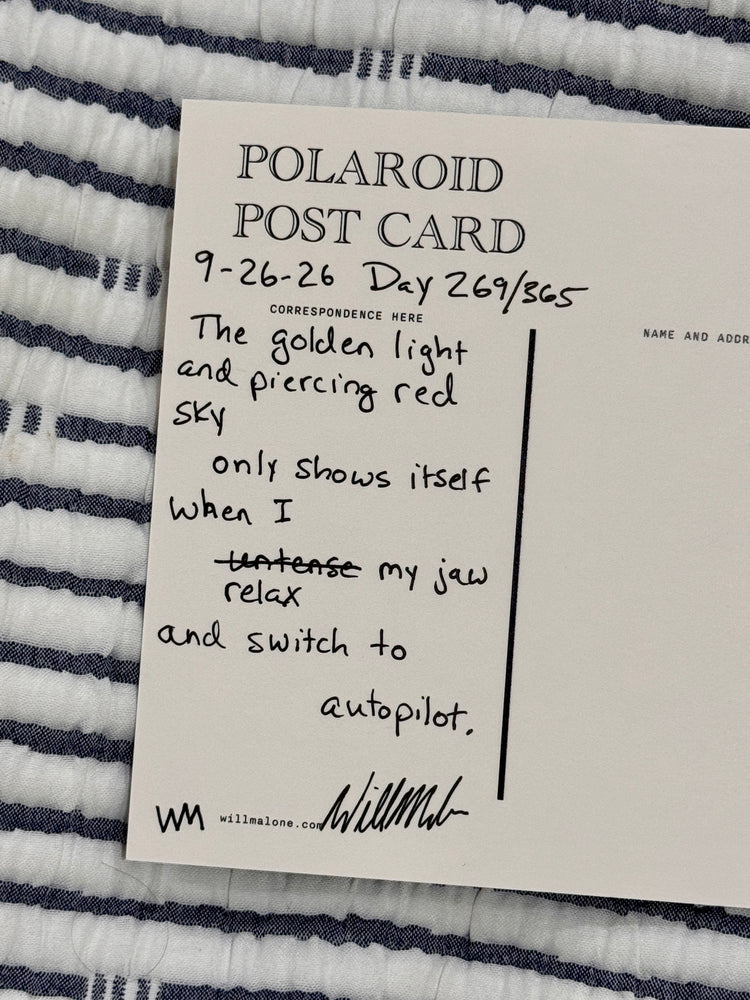 POLAROID
POST CARD
9-26-26 Day 269/365
CORRESPONDENCE HERE
NAME AND ADDR
The golden light
and piercing red
sky
only shows itself
when I
untense my jaw
relax
and switch to
autopilot.
WM willmalone.com WillMalone